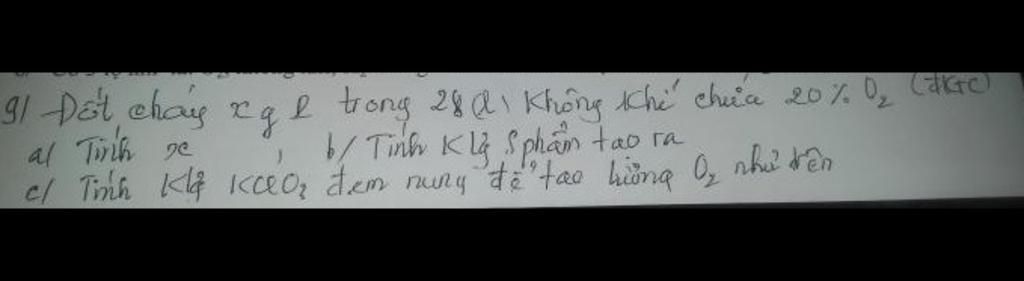 9/ Đốt cháy x g P trong 28 (l) không khí chứa 20% O2 (đktc)
a/ Tính x , b/ Tính Klg Sphẩm tạo ra
c/ Tính Klg KClO3 đem nung để tạo lượng O2 như trên